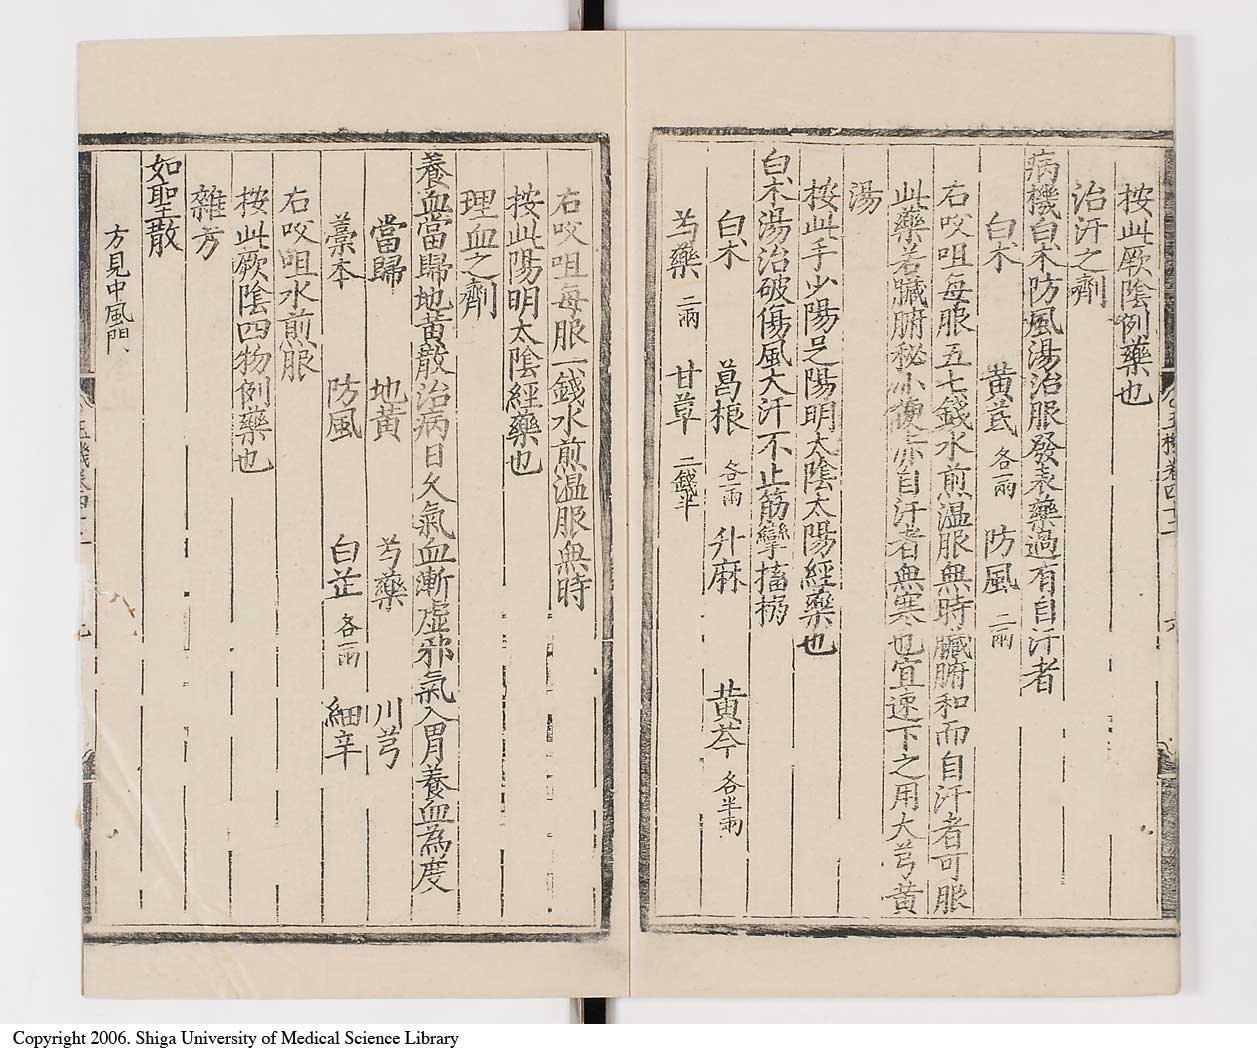 按此厥陰例藥也
治汗之劑
病機白术防風湯治服發表藥過有自汗者
白术 黄芪 各一兩 防風 二兩
右㕮咀每服五七錢水煎温服無時臓腑和而自汗者可服
此藥若臓腑秘小便赤自汗者無寒也宜速下之用大芎黄
湯
按此手少陽足陽明太陰太陽經藥也
白术湯治破傷風大汗不止筋攣搐搦
白术 葛根 各一兩 升麻 黄芩 各半兩
芍藥 二兩 甘草 二錢半
右㕮咀每服一錢水煎温服無時
按此陽明太陰經藥也
理血之劑
養血當歸地黄散治病日久氣血漸虚邪氣入胃養血為度
當歸 地黄 芍藥 川芎
藁本 防風 白芷 各一兩 細辛
右㕮咀水煎服
按此厥陰四物例藥也
雜方
如聖散
方見中風門
Copyright 2006. Shiga University of Medical Science Library